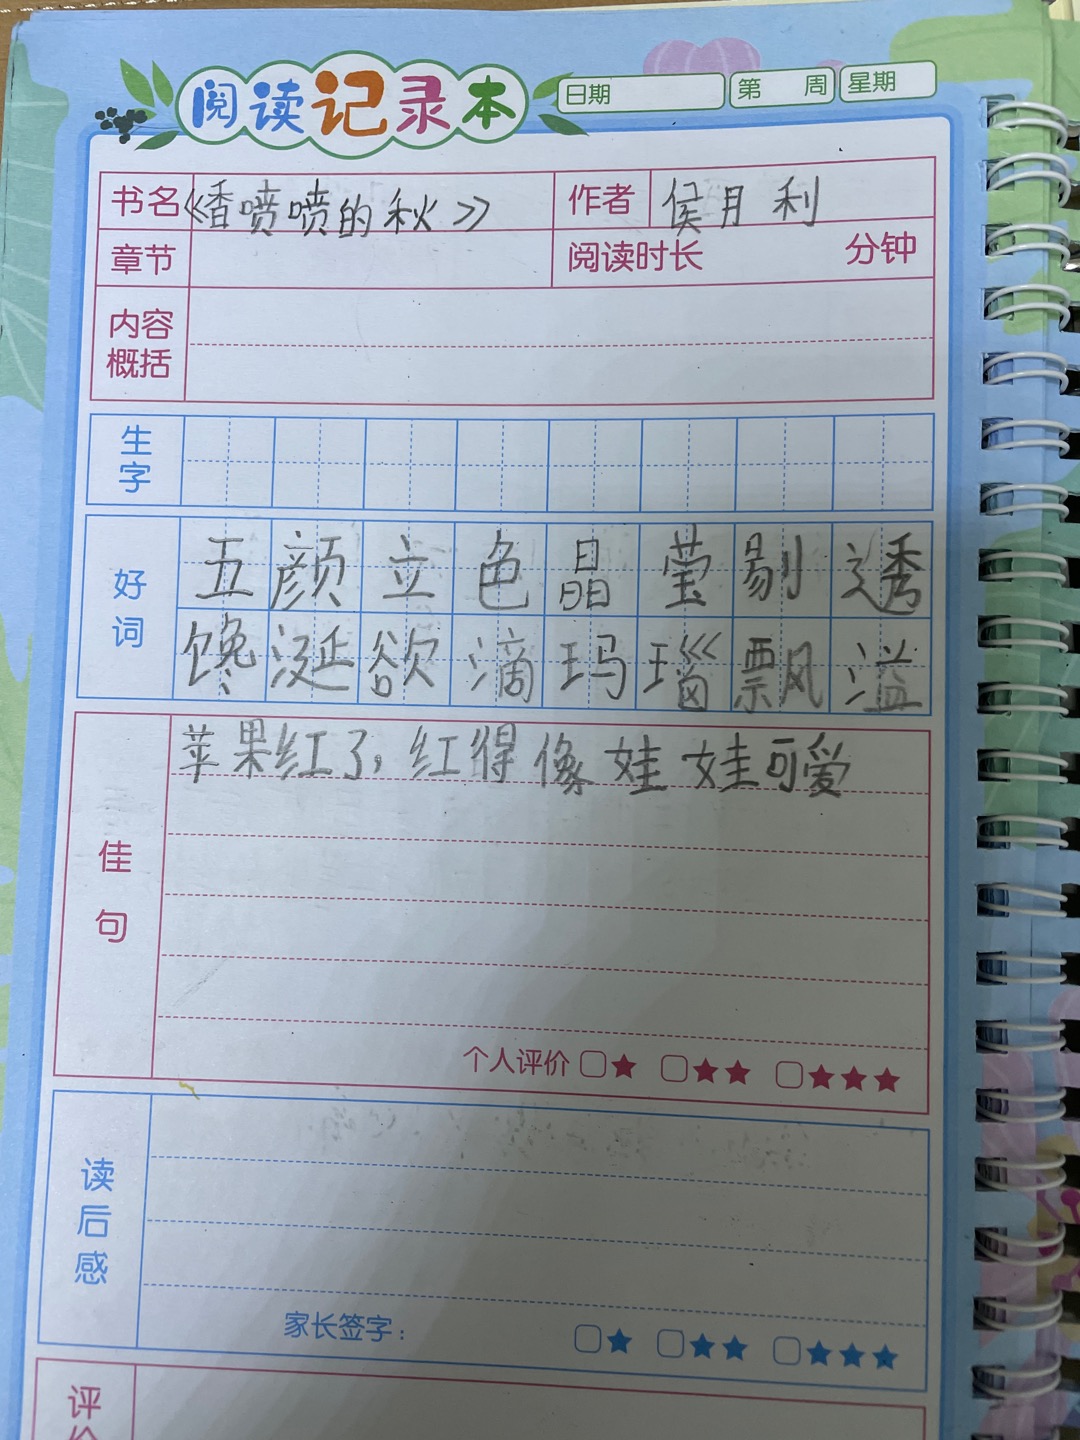 阅读记录本 日期 第 周 星期
书名 《香喷喷的秋》 作者 侯月利
章节 阅读时长 分钟
内容
概括
生字
好词
五颜立色晶莹剔透
馋涎欲滴玛瑙飘溢
佳句
苹果红了，红得像娃娃可爱
个人评价 ★ ★★ ★★★
读后感
家长签字： ★ ★★ ★★★
评价